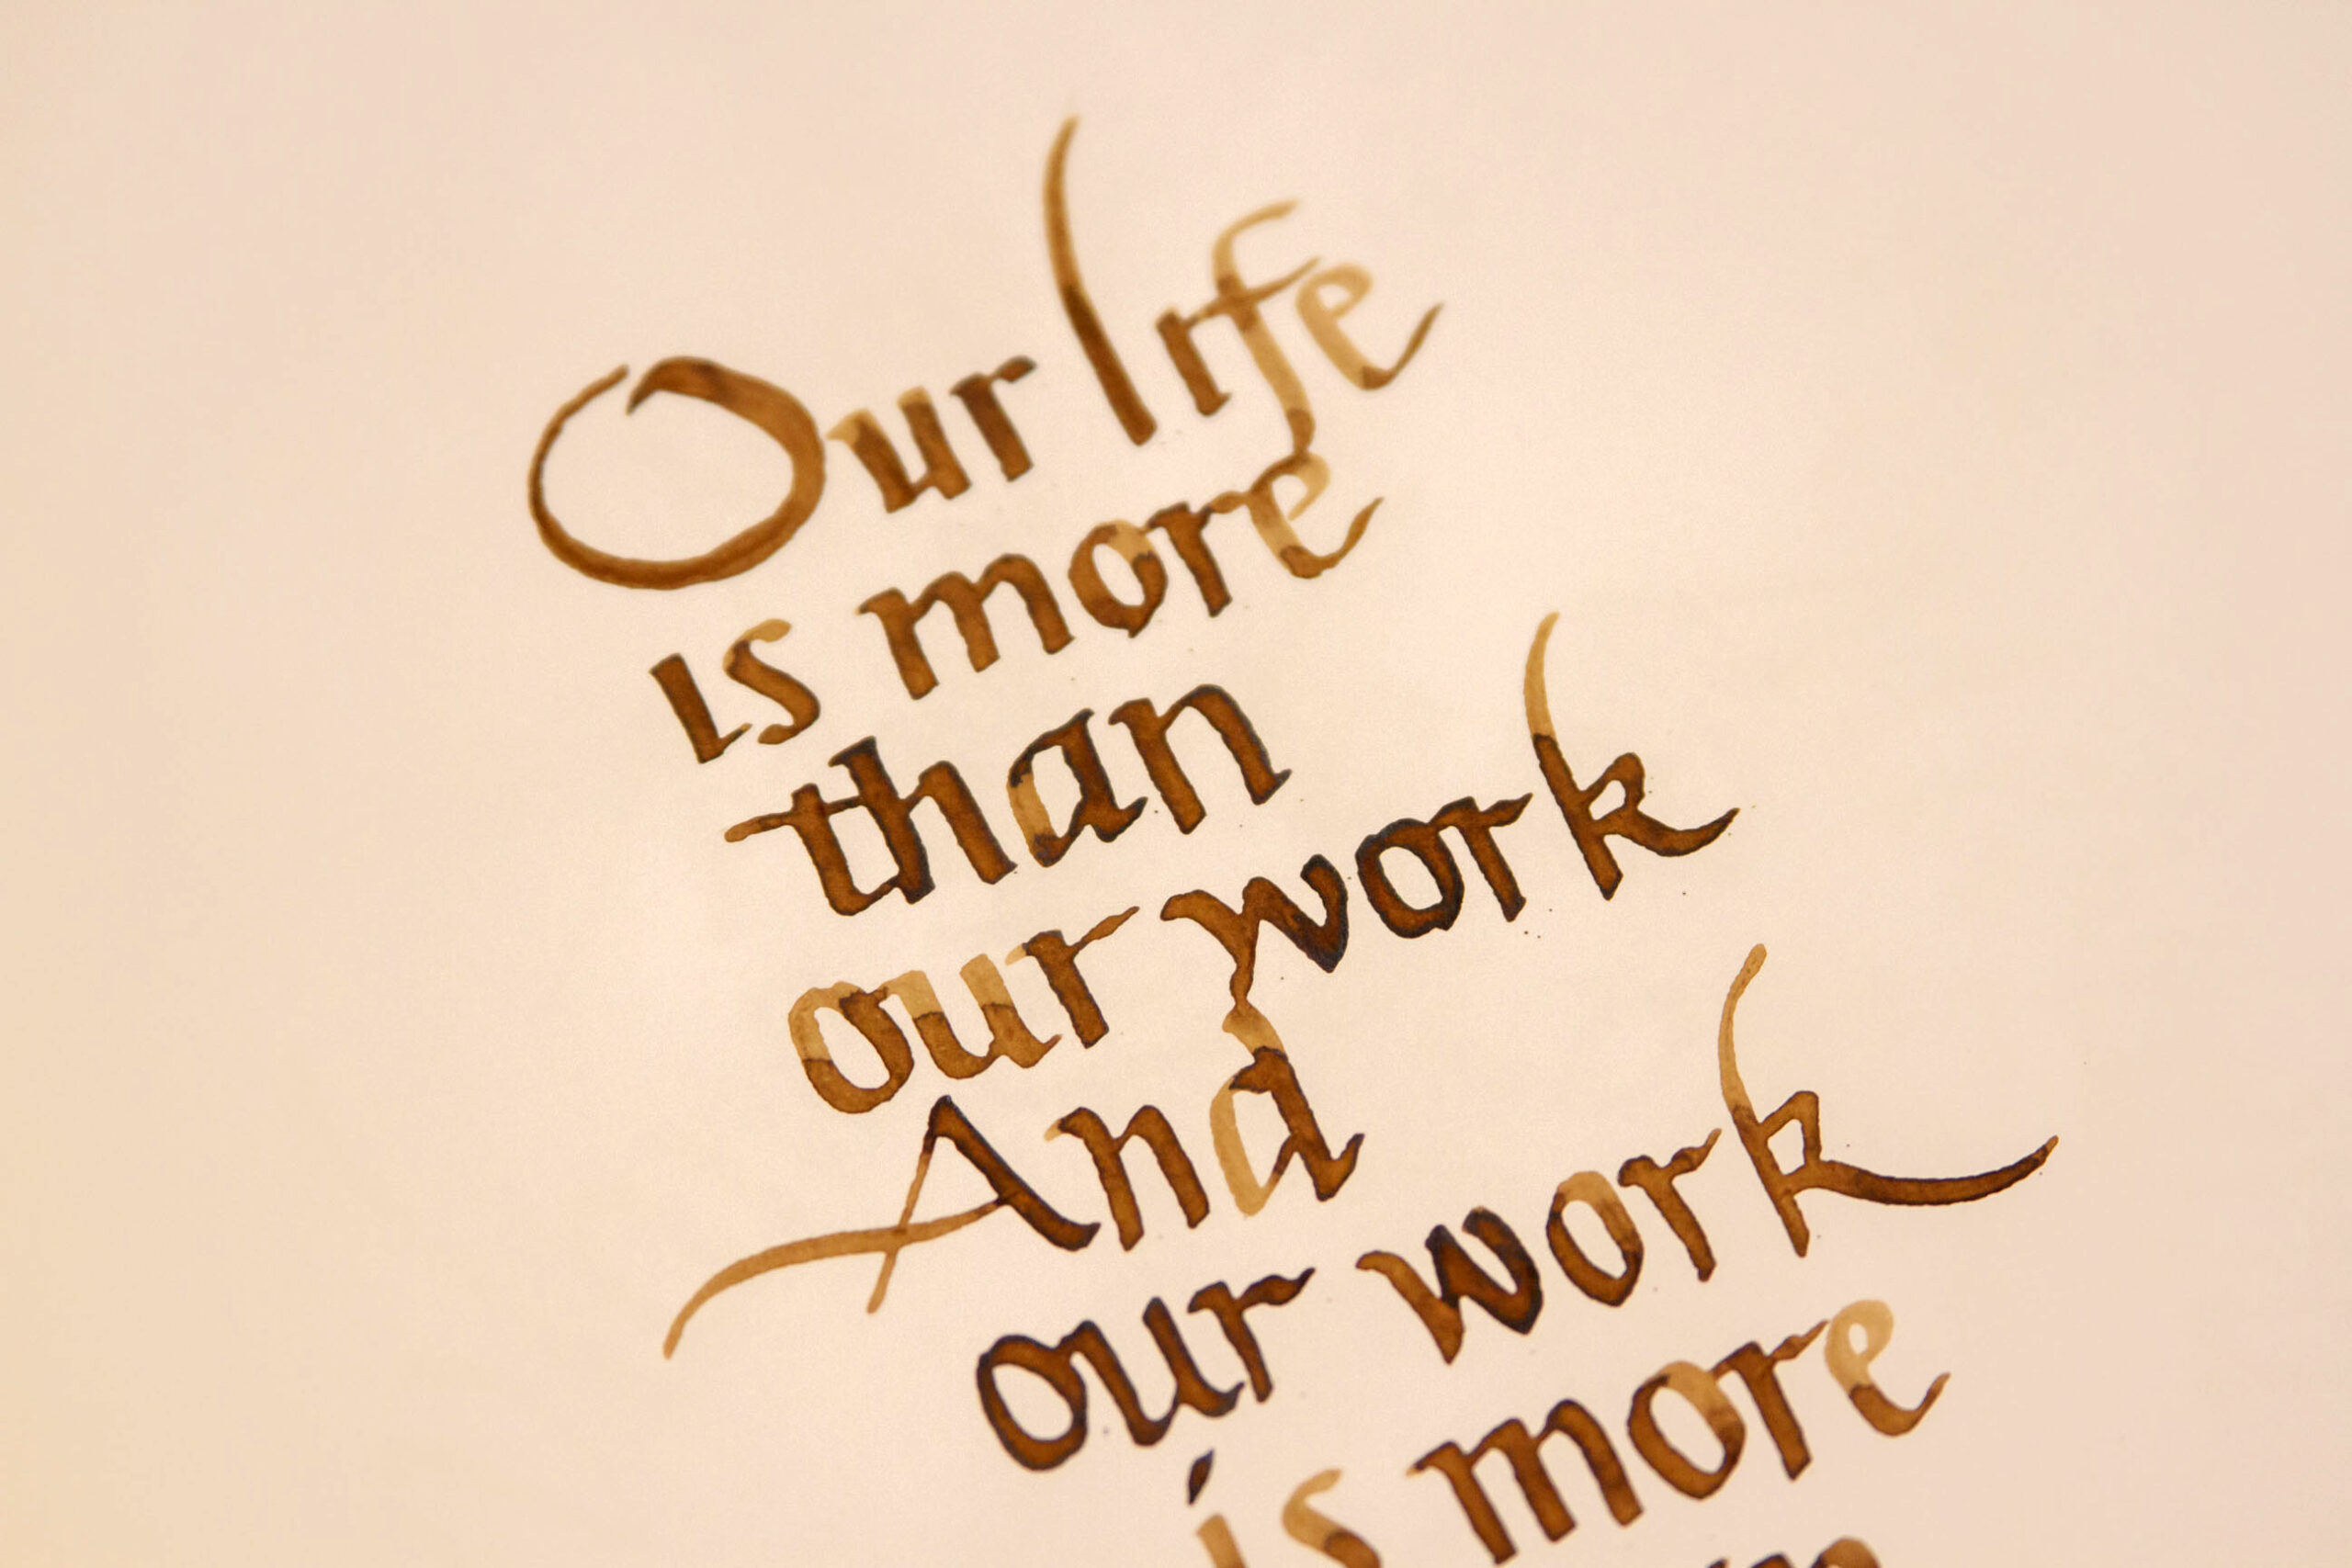 Our life
is more
than
our work
And
our work
is more